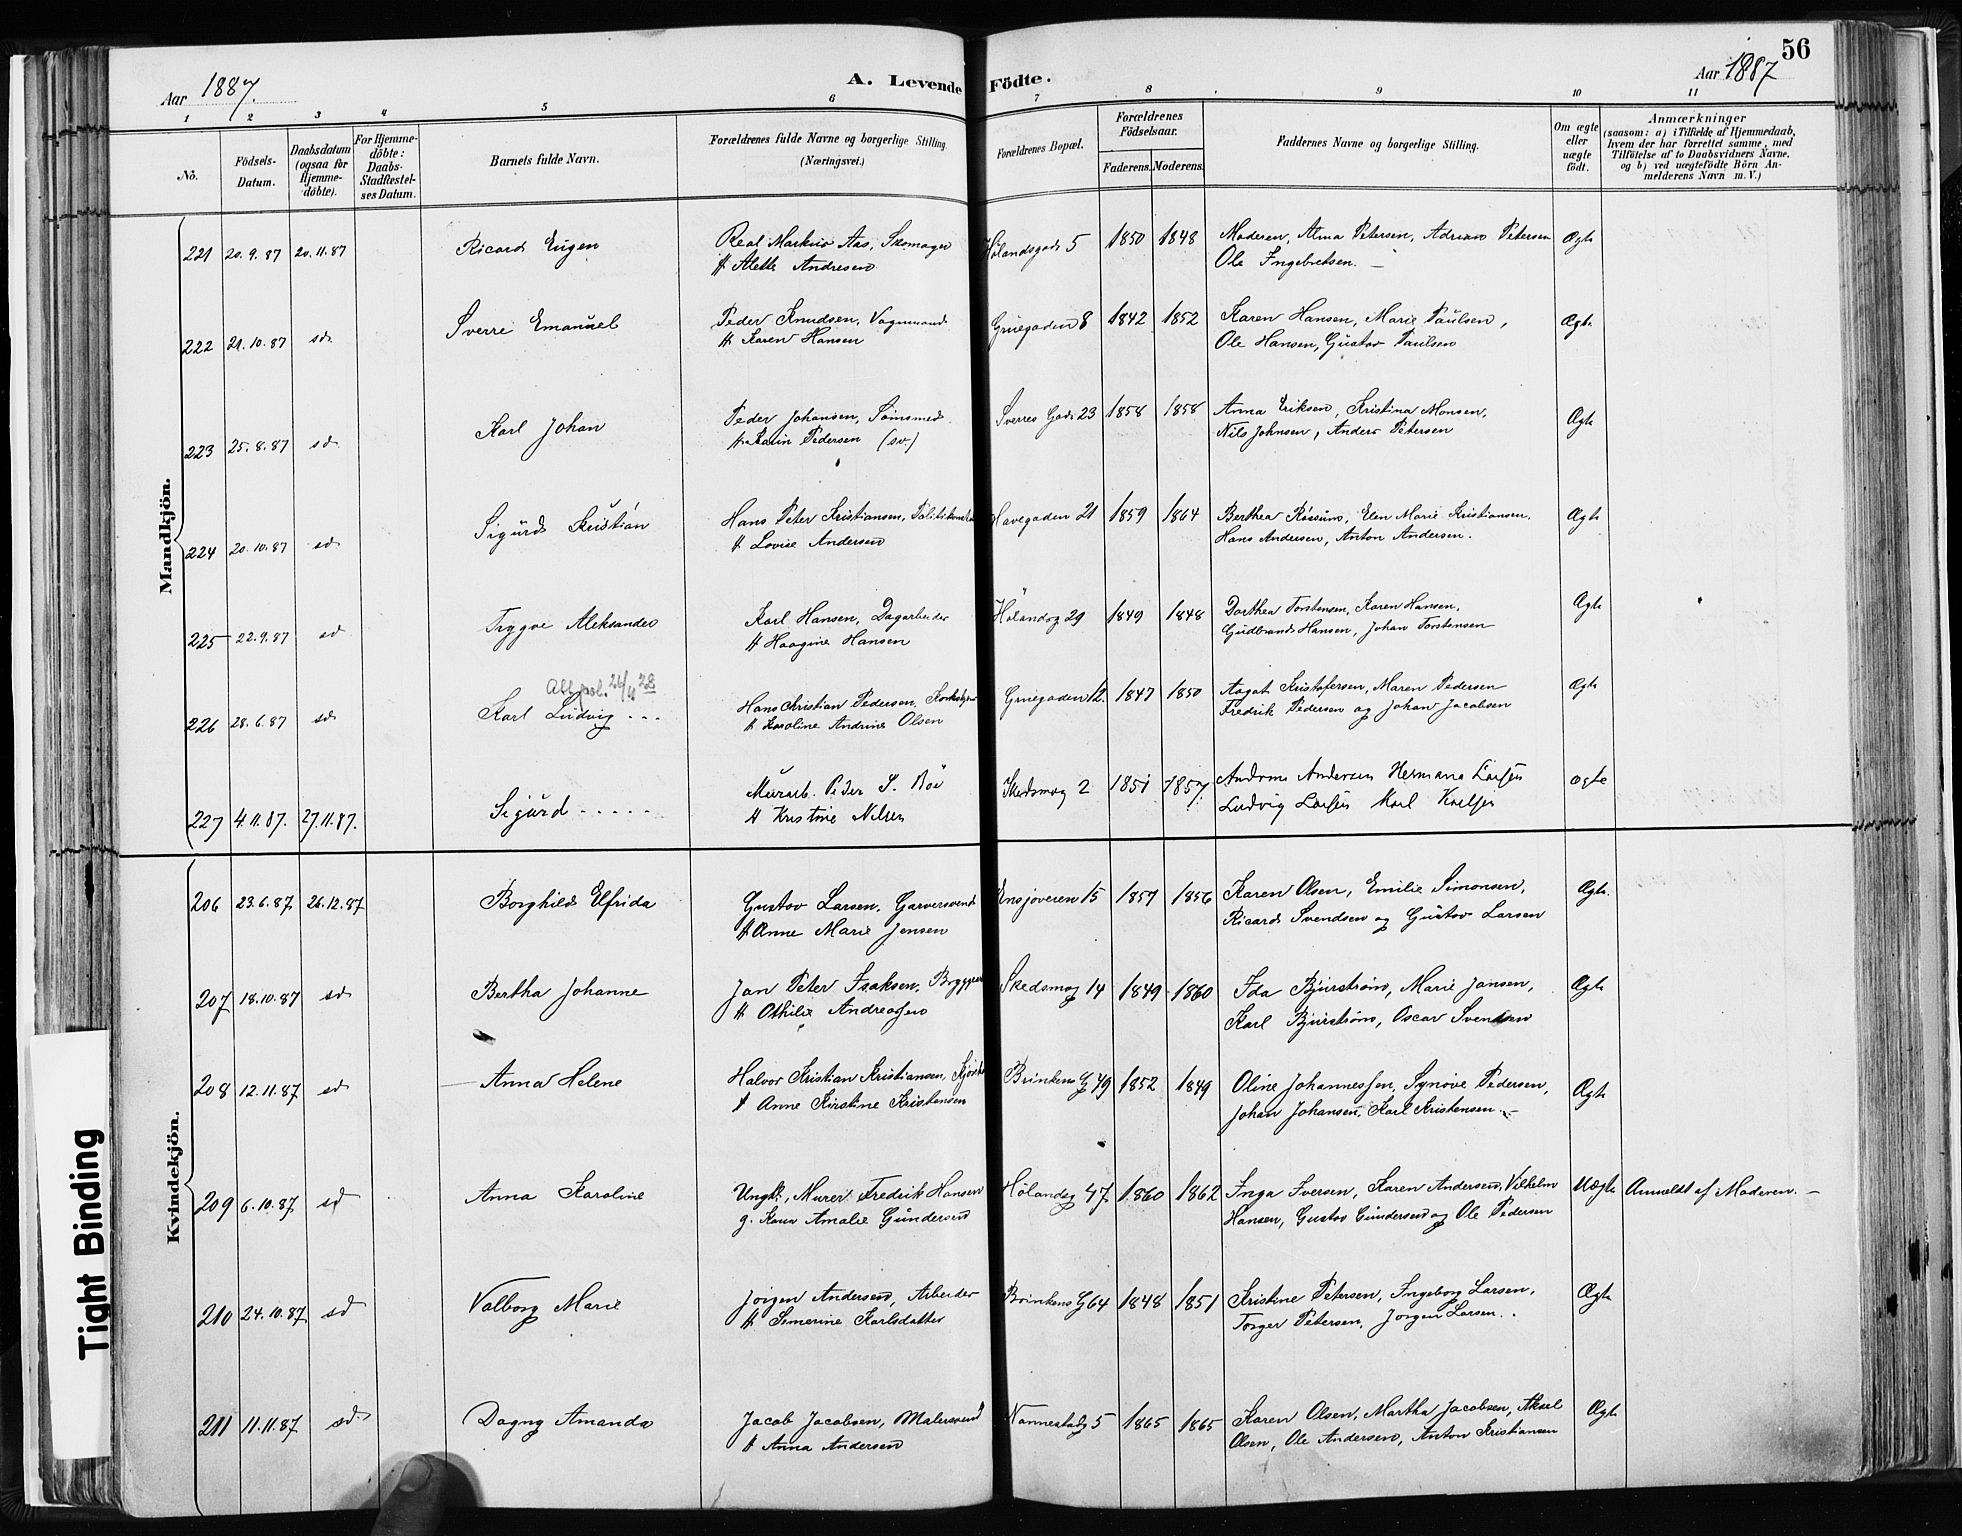 Aar 1887.
A. Levende Födte.
Aar 1887
56
1 2 3 4 5 6 7 8 9 10 11
No.
Födsels-Datum.
Daabsdatum (ogsaa for Hjemme-döbte).
For Hjemme-döbte: Daabs-Stadfæstel-ses Datum.
Barnets fulde Navn.
Forældrenes fulde Navne og borgerlige Stilling (Næringsvei.)
Forældrenes Bopæl.
Forældrenes Födselsaar.
Faderens. Moderens.
Faddernes Navne og borgerlige Stilling.
Om ægte eller uægte födt.
Anmærkninger
(saasom: a) i Tilfælde af Hjemmedaab,
hvem der har forrettet samme, med
Tilföielse af to Daabsvidners Navne.
og b) ved uægtefödte Börn An-
melderens Navn m. V.)
Mandkjön.
221 20.9.87 20.11.87 Ricard Eugen Real Markus Aas, Skomager Hölandsgade 5 1850 1848 Moderen, Alma Petersen, Adrian Petersen Ægte
& Alette Andresen Ole Ingebretsen. —
222 21.10.87 sd. Sverre Emanuel Peder Knudsen, Vognmand Gruegaden 8 1842 1852 Karen Hansen, Marie Paulsen, Ægte
& Karen Hansen Ole Hansen, Gustav Paulsen
223 25.8.87 sd. Karl Johan Peder Johansen, Sömsmed Sverres Gade 23 1858 1858 Anna Eriksen, Kristina Monsen, Ægte
& Karin Pedersen (sv.) Nils Johnsen, Anders Petersen
224 20.10.87 sd. Sigurd Kristian Hans Peter Kristiansen, Havegaden 21 1859 1864 Berthea Róssum, Elen Marie Kristiansen. Ægte
& Lovise Andersen Hans Andersen, Anton Andersen.
225 22.9.87 sd Trygve Aleksander Karl Hansen, Dagarbeider Hölandsg 29 1849 1848 Dorthea Torstensen, Karen Hansen, Ægte
& Haagine Hansen Gudbrand Hansen, Johan Torstensen
26/4 28
226 28.6.87 sd. Karl Ludvig . . . Hans Kristian Pedersen, Gruegaden 12. 1847 1850 Aagot Kristofersen, Maren Pedersen Ægte
& Karoline Andrine Olsen Fredrik Pedersen og Johan Jacobsen
227 4.11.87. 27.11.87. Sigurd - - - - - Murarb. Peder S. Böe Skedsmog 2 1851 1857. Andrine Andersen Hermana Larsen ægte
& Kristine Nilsen Ludvig Larsen Karl
Kvindekjön.
206 23.6.87 26.12.87 Borghild Elfrida Gustav Larsen, Garversvend Ensjöveien 15 1857 1856 Karen Olsen, Emilie Simonsen, Ægte.
& Anne Marie Jensen Ricard Svendsen og Gustav Larsen
207 18.10.87 sd Bertha Johanne Jan Peter Isaksen, Skedsmog 14 1849 1860 Ida Bjurström, Marie Jansen, Ægte
& Othilie Andreassen Karl Bjurström, Oscar Svendsen
208 12.11.87 sd Anna Helene Halvor Kristian Kristiansen, Brinkens G 49 1852 1849 Oline Johannessen, Synöve Pedersen, Ægte
& Anne Kirstine Kristensen Johan Johansen, Karl Kristensen. —
209 6.10.87 sd Anna Karoline Ungk., Murer Fredrik Hansen Hölandsg 47 1860 1862 Inga Iversen, Karen Andersen, Vilhelm Uægte Anmeldt af Moderen. —
g. Karen Amalie Gundersen Hansen, Gustav Gundersen og Ole Pedersen
210 24.10.87 sd Valborg Marie Jörgen Andersen, Arbeider Brinkens G 64 1848 1851 Kristine Petersen, Ingeborg Larsen, Ægte
& Simerine Karlsdatter Torger Petersen, Jörgen Larsen. .
211 11.11.87 sd. Dagny Amanda Jacob Jacobsen, Malersvend Nannestadg 5 1865 1865 Karen Olsen, Martha Jacobsen, Aksel Ægte
& Anna Andersen Olsen, Ole Andersen, Anton Kristiansen
Tight Binding